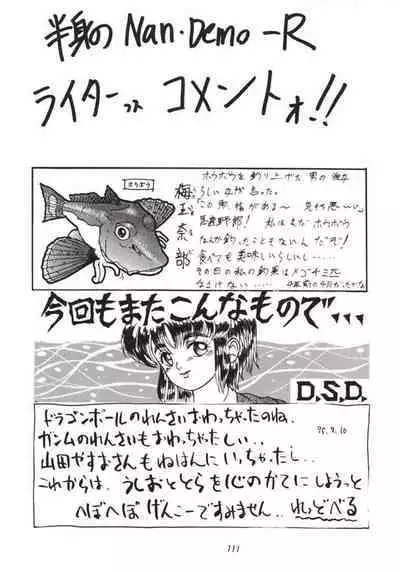 半身の Nan・Demo-R
ライターのコメントォ!!
ホウボウ
梅玉奈部
ホウボウを釣り上げた男の
らしい
「この魚 指がある〜 気持悪〜い」
馬鹿野郎! 私はまだホウボウ
なんか釣ったこともないんだぞ!
食べても美味しいらしいし……
その日の私の釣果はメゴチ三匹
なさけない……
今回もまたこんなもので、、、
D.S.D.
ドラゴンボールのれんさいおわっちゃたのね.
ガンムのれんさいもおわっちゃたしい..
山田やすおさんもねはんにいっちゃたし..
これからは、うしおととらを心のかてにしようっと
へぼへぼげんこーですみません.. れっどべる
111